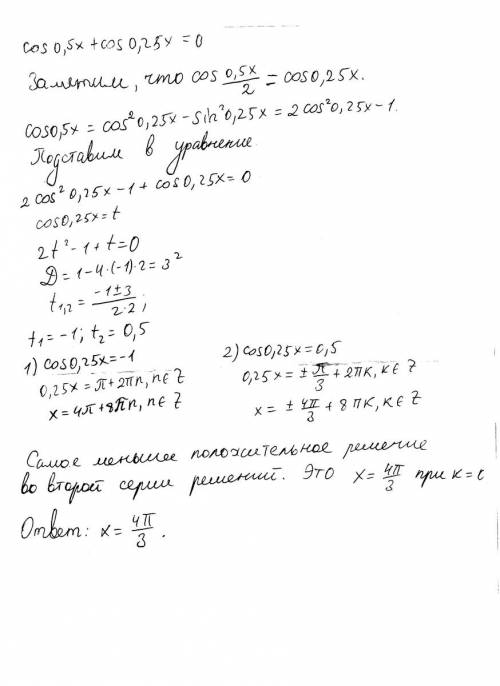 cos 0,5x + cos 0,25x = 0
Заметим, что cos 0,5x/2 = cos 0,25x.
cos 0,5x = cos² 0,25x - sin² 0,25x = 2 cos² 0,25x - 1.
Подставим в уравнение
2 cos² 0,25x - 1 + cos 0,25x = 0
cos 0,25x = t
2t² - 1 + t = 0
D = 1 - 4·(-1)·2 = 3²
t₁,₂ = (-1 ± 3)/(2·2);
t₁ = -1; t₂ = 0,5
1) cos 0,25x = -1
0,25x = π + 2πn, n ∈ Z
x = 4π + 8πn, n ∈ Z
2) cos 0,25x = 0,5
0,25x = ± π/3 + 2πk, k ∈ Z
x = ± 4π/3 + 8πk, k ∈ Z
Самое меньшее положительное решение
во второй серии решений. Это x = 4π/3 при к =
Ответ: x = 4π/3.